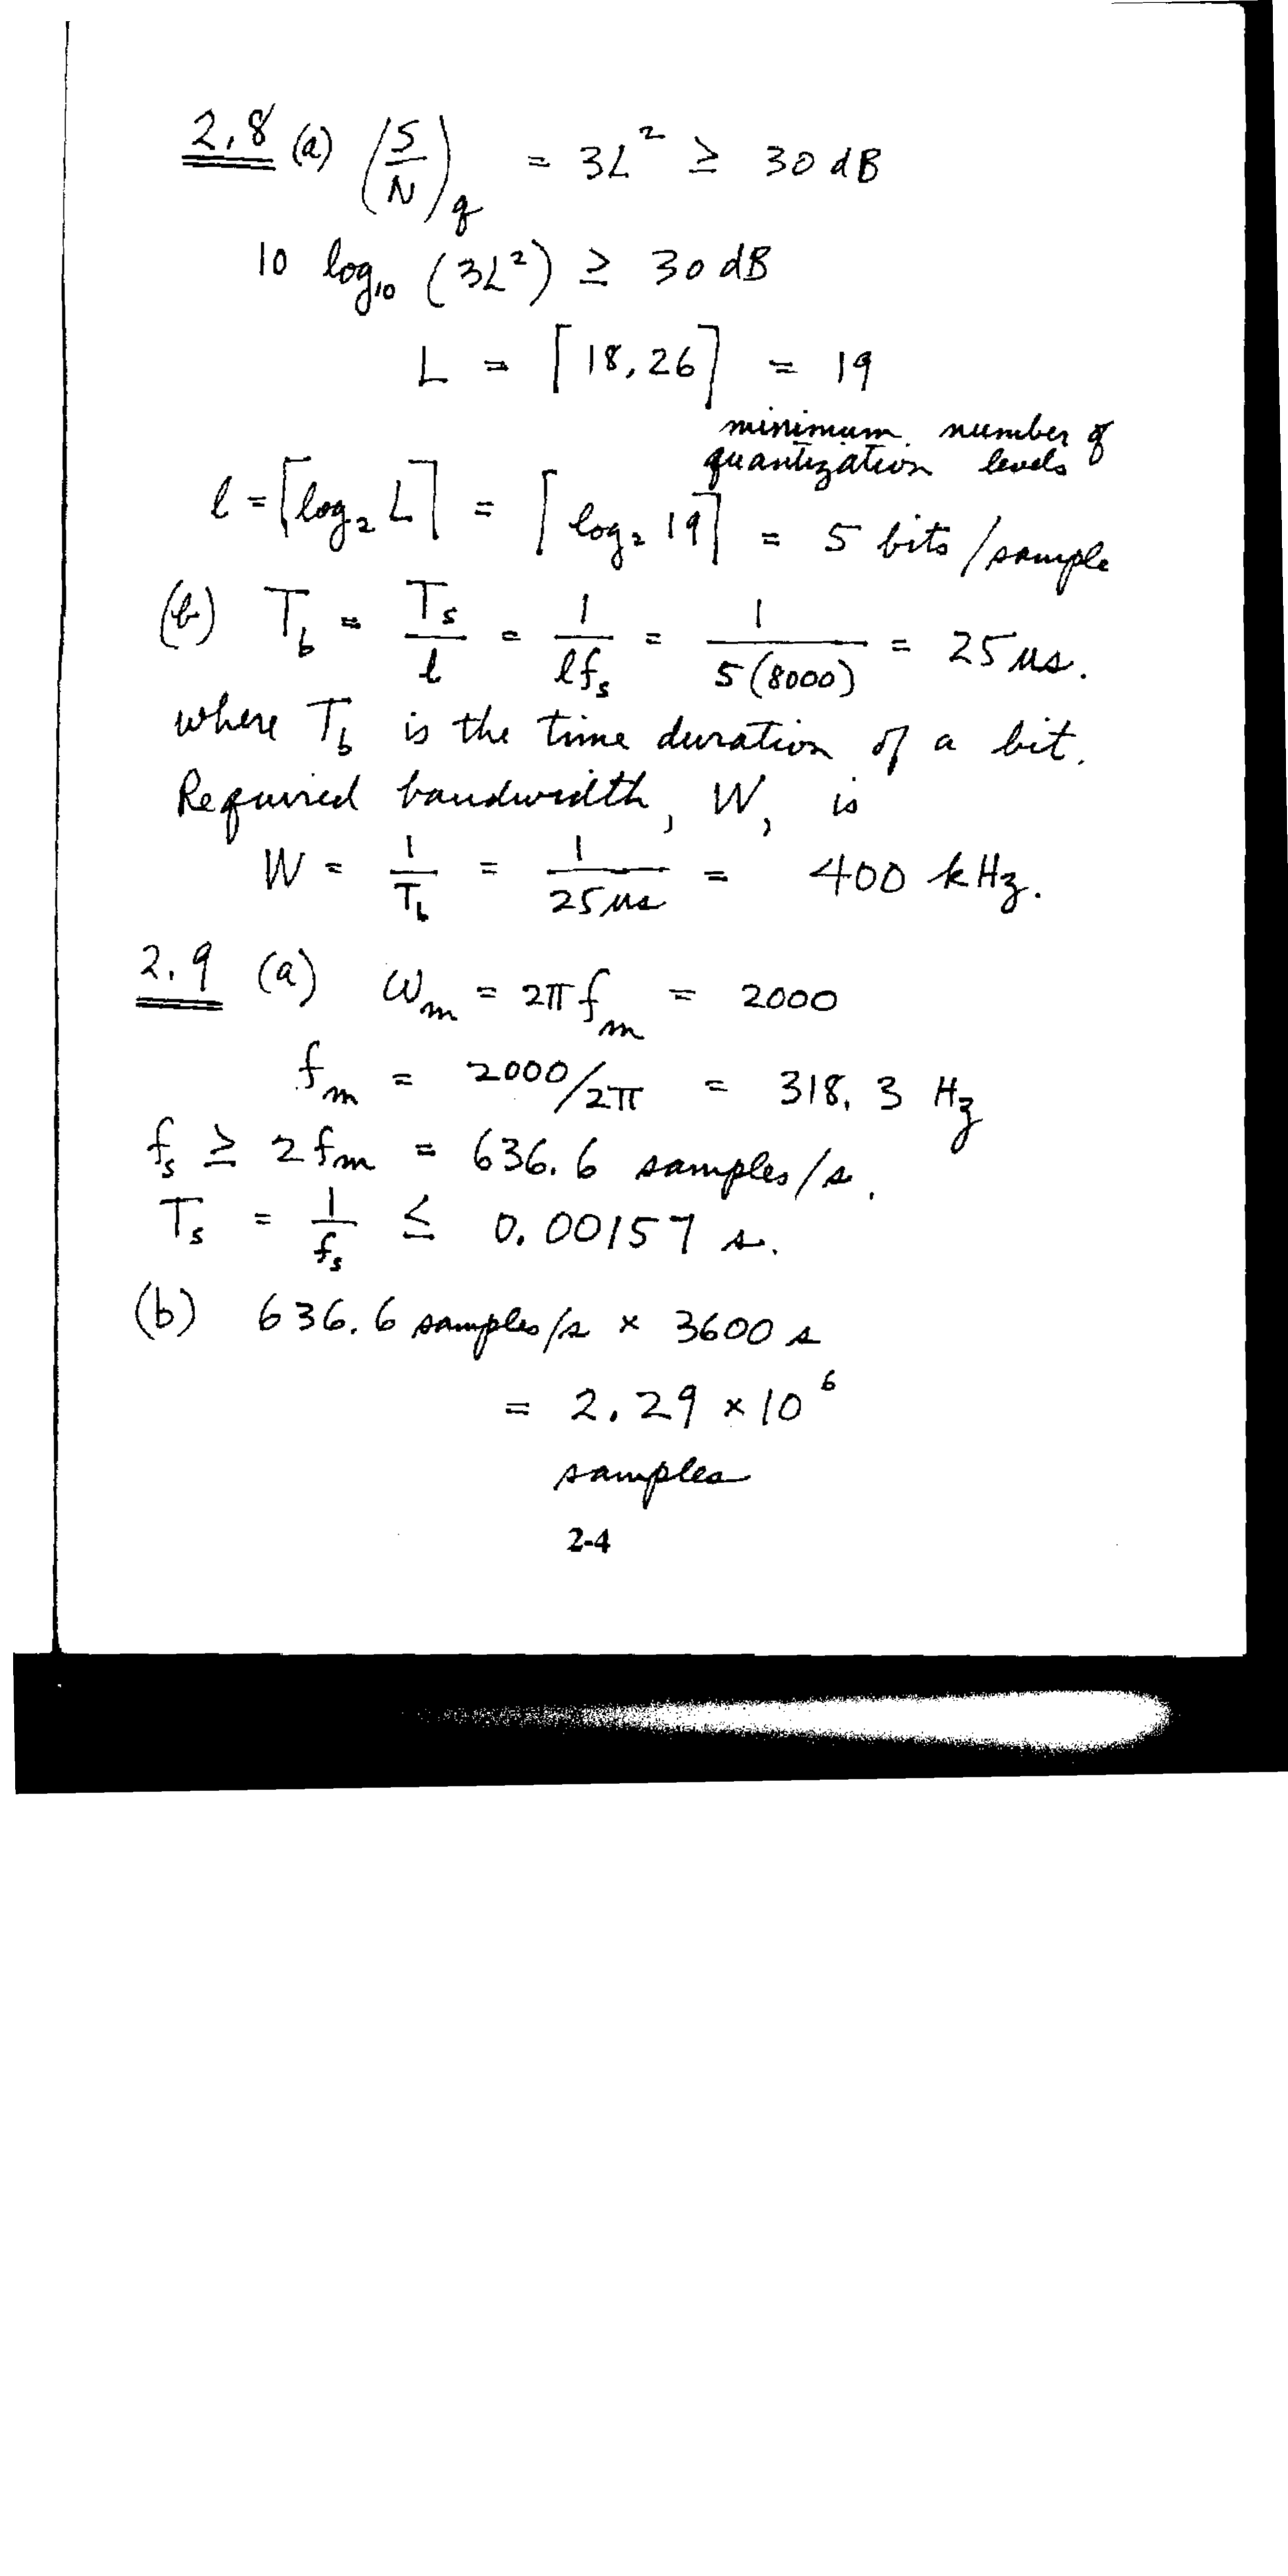 2.8 (a) (S/N)q = 3L² ≥ 30 dB
10 log₁₀ (3L²) ≥ 30 dB
L = ⌈18.26⌉ = 19
minimum number of
quantization levels
l = ⌈log₂ L⌉ = ⌈log₂ 19⌉ = 5 bits/sample
(b) T_b = T_s/l = 1/(l f_s) = 1/(5(8000)) = 25 μs.
where T_b is the time duration of a bit.
Required bandwidth, W, is
W = 1/T_b = 1/(25 μs) = 400 kHz.
2.9 (a) ω_m = 2π f_m = 2000
f_m = 2000/2π = 318.3 Hz
f_s ≥ 2 f_m = 636.6 samples/s.
T_s = 1/f_s ≤ 0.00157 s.
(b) 636.6 samples/s × 3600 s
= 2.29 × 10⁶
samples
2-4